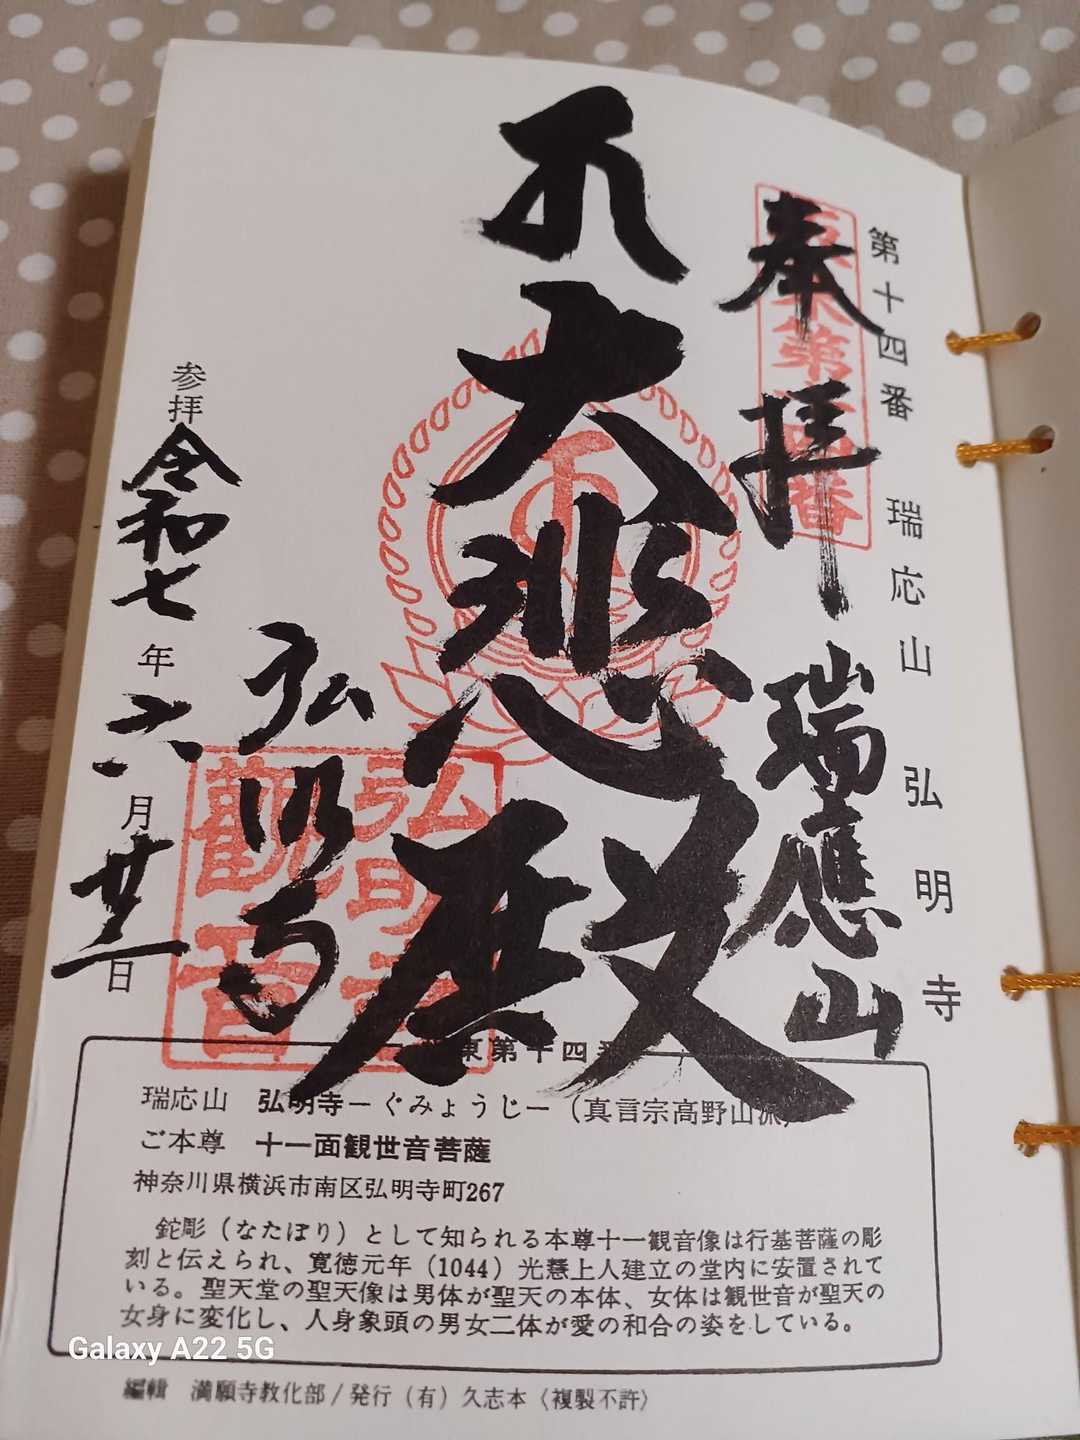 第十四番 瑞応山 弘明寺
奉拝
瑞應山
大悲殿
弘明寺
参拝
令和七年六月廿一日
瑞応山 弘明寺－ぐみょうじ－（真言宗高野山派）
ご本尊 十一面観世音菩薩
神奈川県横浜市南区弘明寺町267
鉈彫（なたぼり）として知られる本尊十一観音像は行基菩薩の彫
刻と伝えられ、寛徳元年（1044）光慧上人建立の堂内に安置されて
いる。聖天堂の聖天像は男体が聖天の本体、女体は観世音が聖天の
女身に変化し、人身象頭の男女二体が愛の和合の姿をしている。
編輯 満願寺教化部/発行（有）久志本〈複製不許〉
Galaxy A22 5G